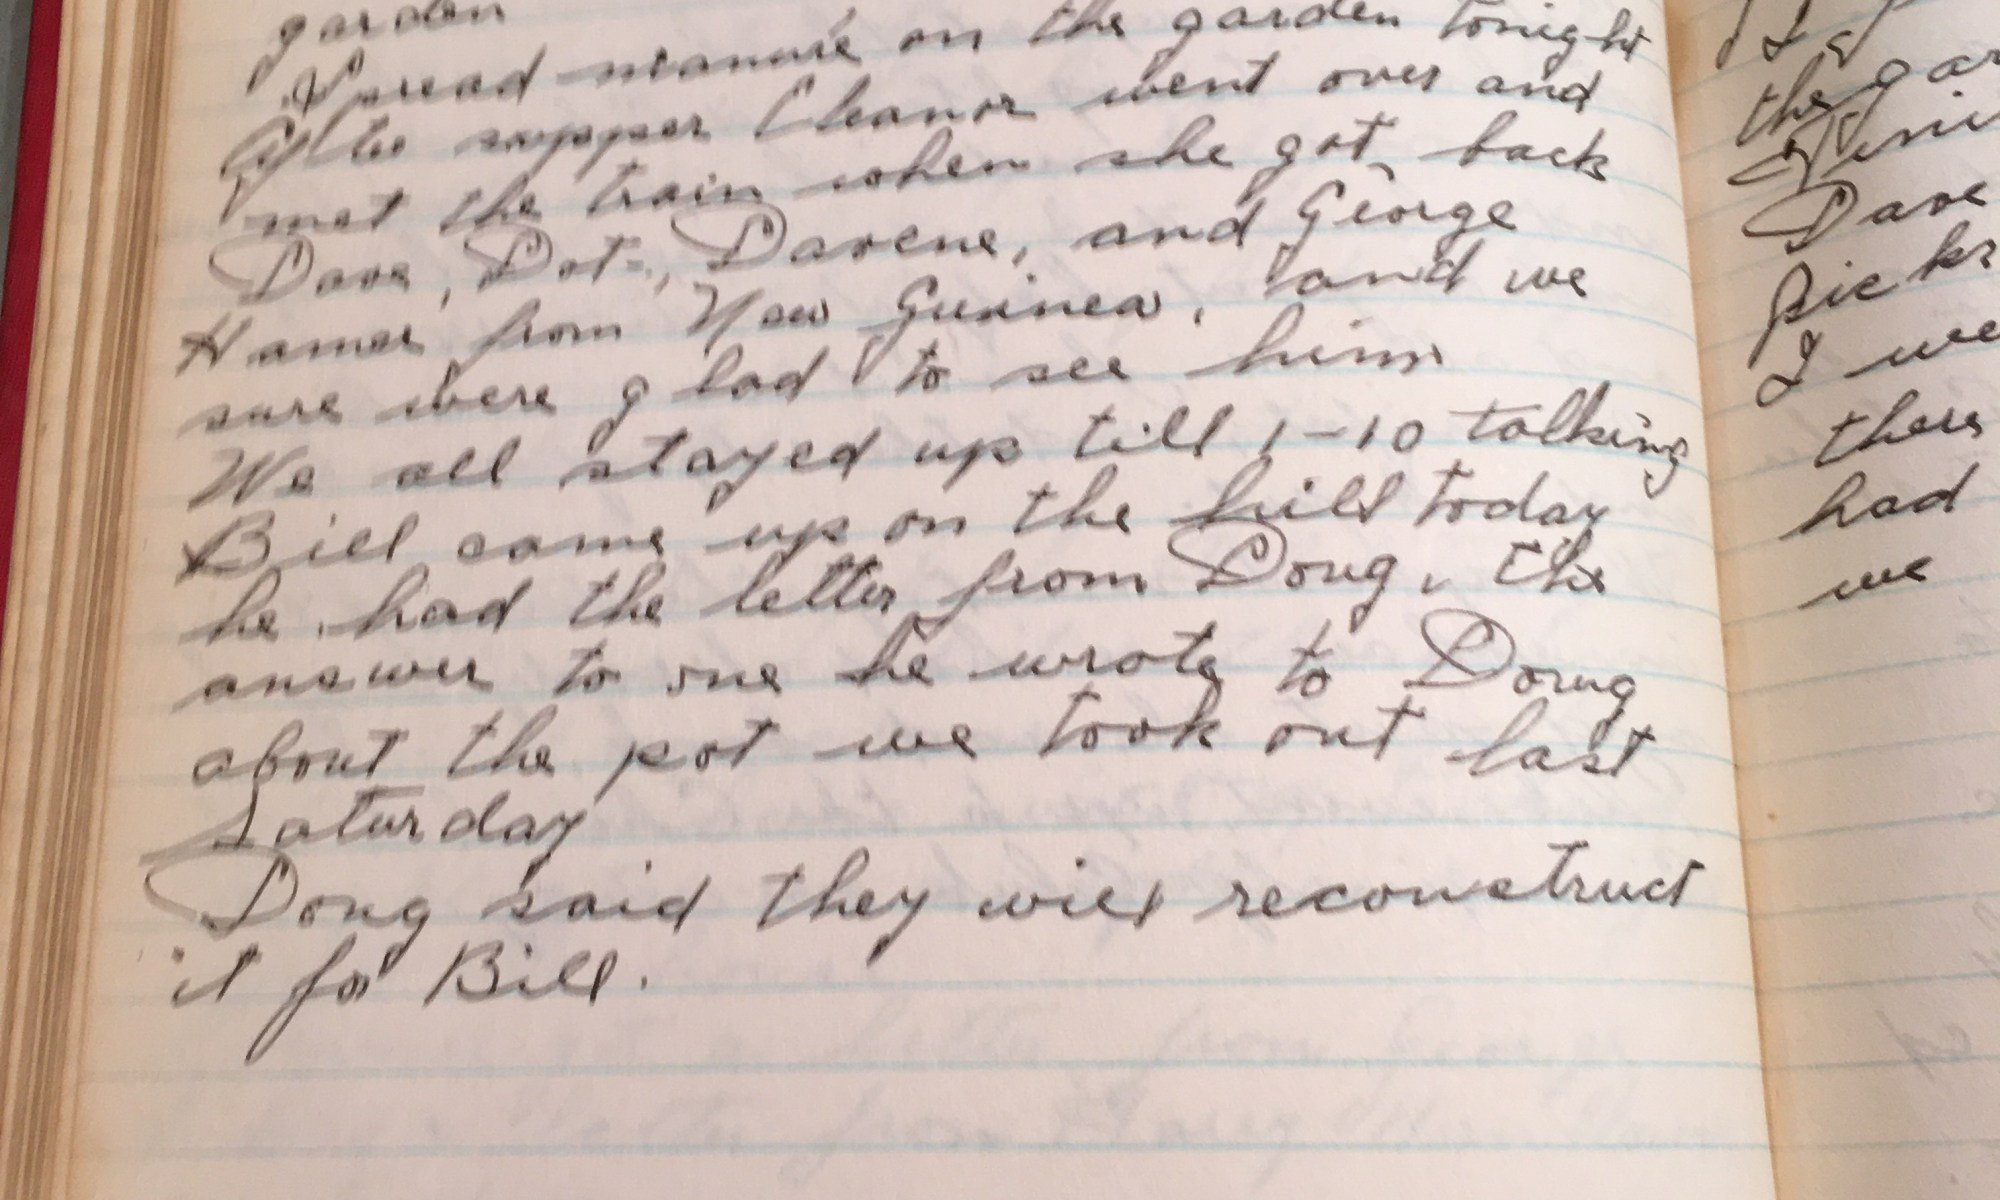 garden
Spread manure on the garden tonight
After supper Eleanor went over and
met the train when she got back
Dave, Dot, Davene, and George
Hamer from New Guinea, and we
sure were glad to see him
We all stayed up till 1-10 talking
Bill came up on the hill today
he had the letter from Doug, the
answer to one he wrote to Doug
about the pot we took out last
Saturday
Doug said they will reconstruct
it for Bill.
the gar
Dave
Picks
I we
there
had
we